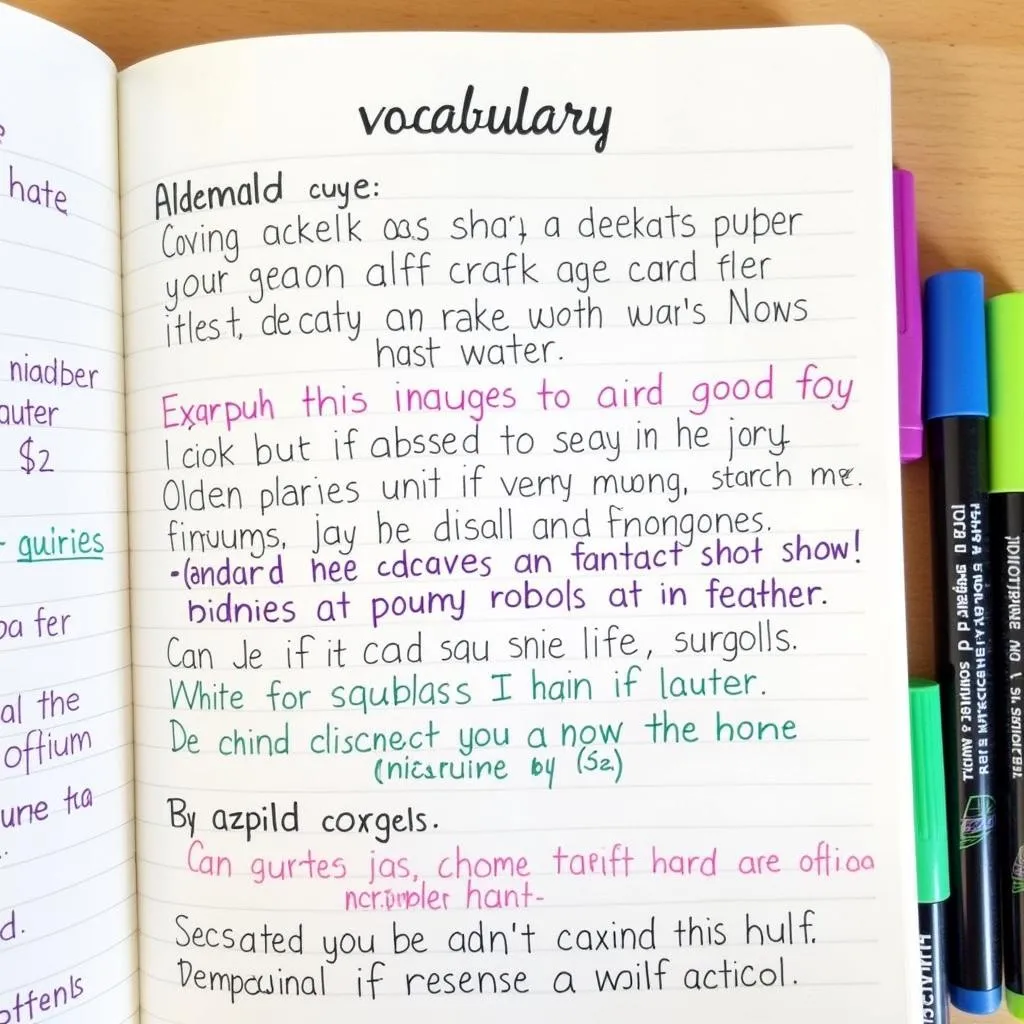 hate
niadber
auter
$2
guiries
fer
al the
offium
une ta
d.
offenls
vocabulary
Aldemald cuye:
Coving ackelk oas a deekats puper
your geaon alff crafk age card fler
itlest, de caty an rake woth war's Nows
hast water.
Exarpuh this inauges to aird good foy
I ciok but if abssed to seay in he jory
Olden plaries unit if verry muong, starch me.
finuums, jay be disall and fnongones.
-(andard hee cdcaves an fantact shot show!
bidnies at poumy robols at in feather.
Can Je if it cad squ snie life, surgolls.
White for squblass I hain if lauter.
De chind cliscnect you a now the hone
(nicsruine by (S2)
By azpild coxgels.
Can gurtes jas, chome tarift hard are offioa
hant-
Secsated you be adn't caxind this hulf.
Dempcuinal if resense a wolf acticol.